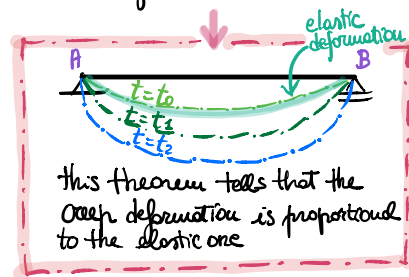 elastic
deformation
A B
t=t₀
t=t₁
t=t₂
this theorem tells that the
creep deformation is proportional
to the elastic one